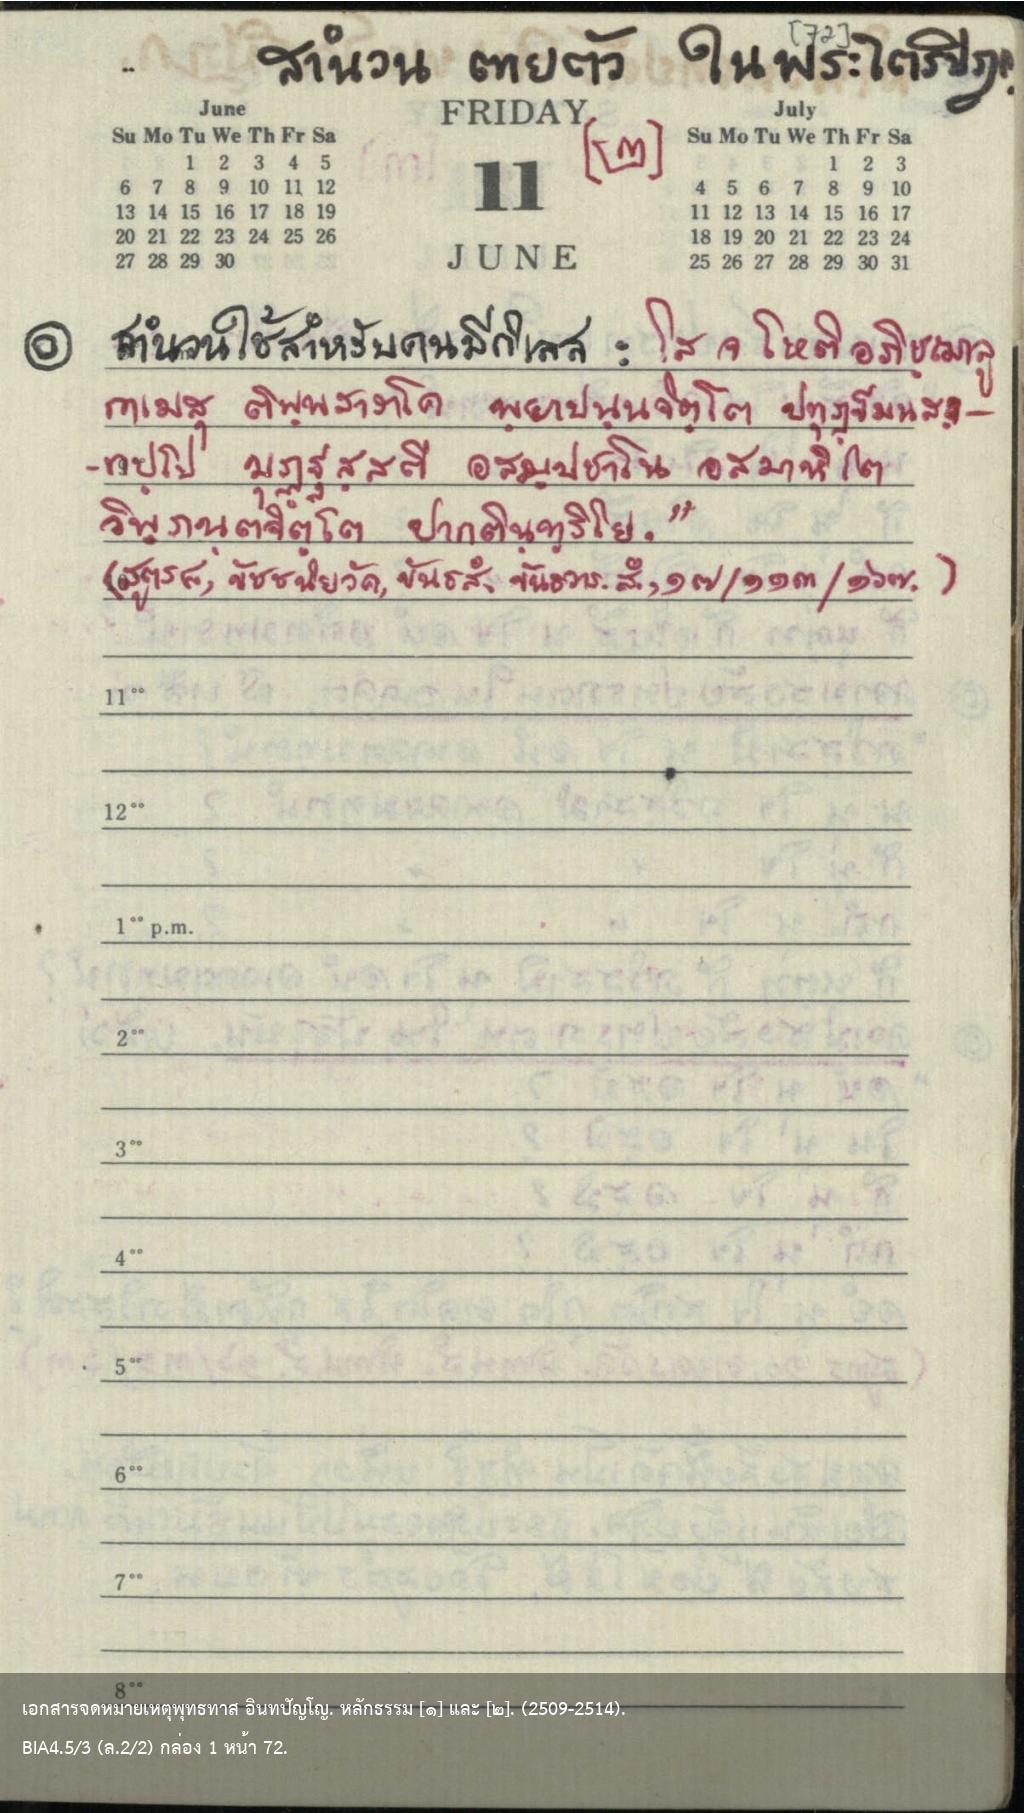 [72]
สำนวน ตายตัว ในพระไตรปิฎก.
June
Su Mo Tu We Th Fr Sa
1 2 3 4 5
6 7 8 9 10 11 12
13 14 15 16 17 18 19
20 21 22 23 24 25 26
27 28 29 30
FRIDAY
11
JUNE
July
Su Mo Tu We Th Fr Sa
1 2 3
4 5 6 7 8 9 10
11 12 13 14 15 16 17
18 19 20 21 22 23 24
25 26 27 28 29 30 31
สำนวนใช้สำหรับคนมีกิเลส : โส จ โหติ อภิชฺฌาลู
กาเมสุ ติพฺพสาราโค พฺยาปนฺนจิตฺโต ปทุฏฺฐมนส-
-งฺกปฺโป มุฏฺฐสฺสติ อสมฺปชาโน อสมาหิโต
วิพฺภนฺตจิตฺโต ปากตินฺทฺริโย."
ขัชชนิยวัค, ขันธสํ. ขันธวาร. สํ., ๑๗/๑๑๓/๑๖๗. )
11°°
12°°
1°° p.m.
2°°
3°°
4°°
5°°
6°°
7°°
8°°
เอกสารจดหมายเหตุพุทธทาส อินทปัญโญ. หลักธรรม [๑] และ [๒]. (2509-2514).
BIA4.5/3 (ล.2/2) กล่อง 1 หน้า 72.